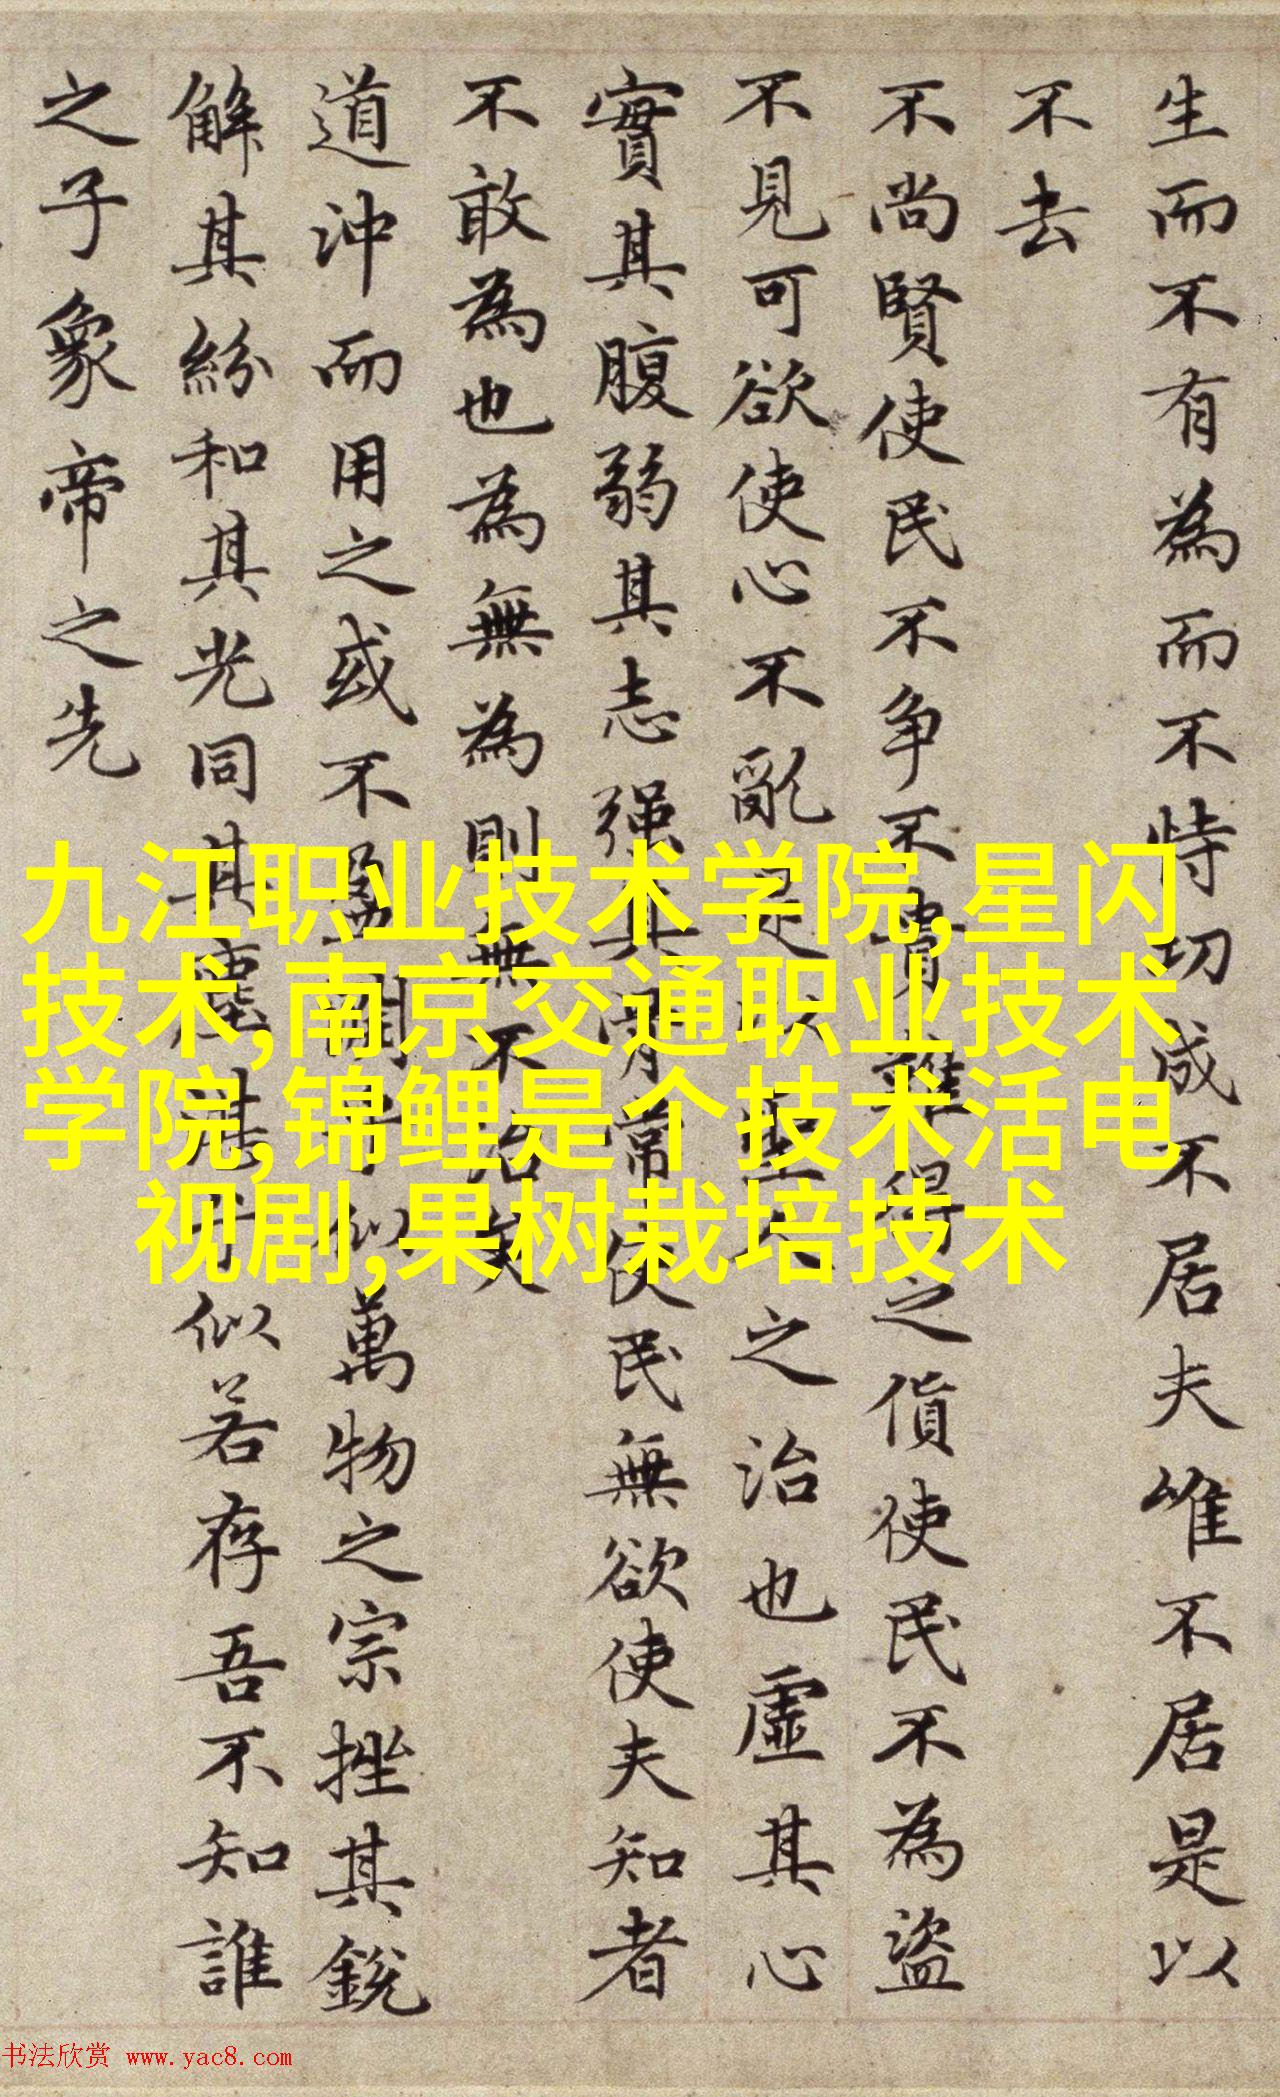 生而不有為而不恃功成不居夫唯不居是以
不去
不尚賢使民不争不貴難得之貨使民不為盗
不見可欲使心不亂是以聖人之治也虛其心
實其腹弱其志强其骨常使民無欲使夫知者
不敢為也為無為則無不治矣
道沖而用之或不盈淵乎似萬物之宗挫其銳
解其紛和其光同其塵湛乎似若存吾不知誰
之子象帝之先
九江职业技术学院,星闪
技术,南京交通职业技术
学院,锦鲤是个技术活电
视剧,果树栽培技术
书法欣赏 www.yac8.com